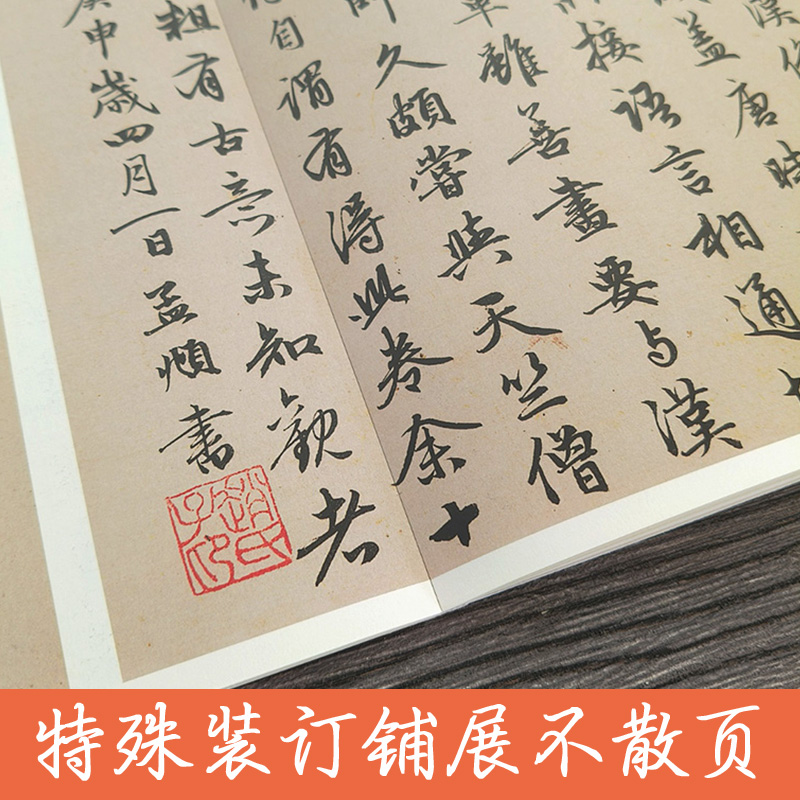 域蓋唐時
所接語言相通
輩雖善畫要与漢
師久頗嘗與天竺僧
自謂有得此卷余十
粗有古意未知觀者
庚申歲四月一日孟頫書
趙氏子昂
特殊装订铺展不散页